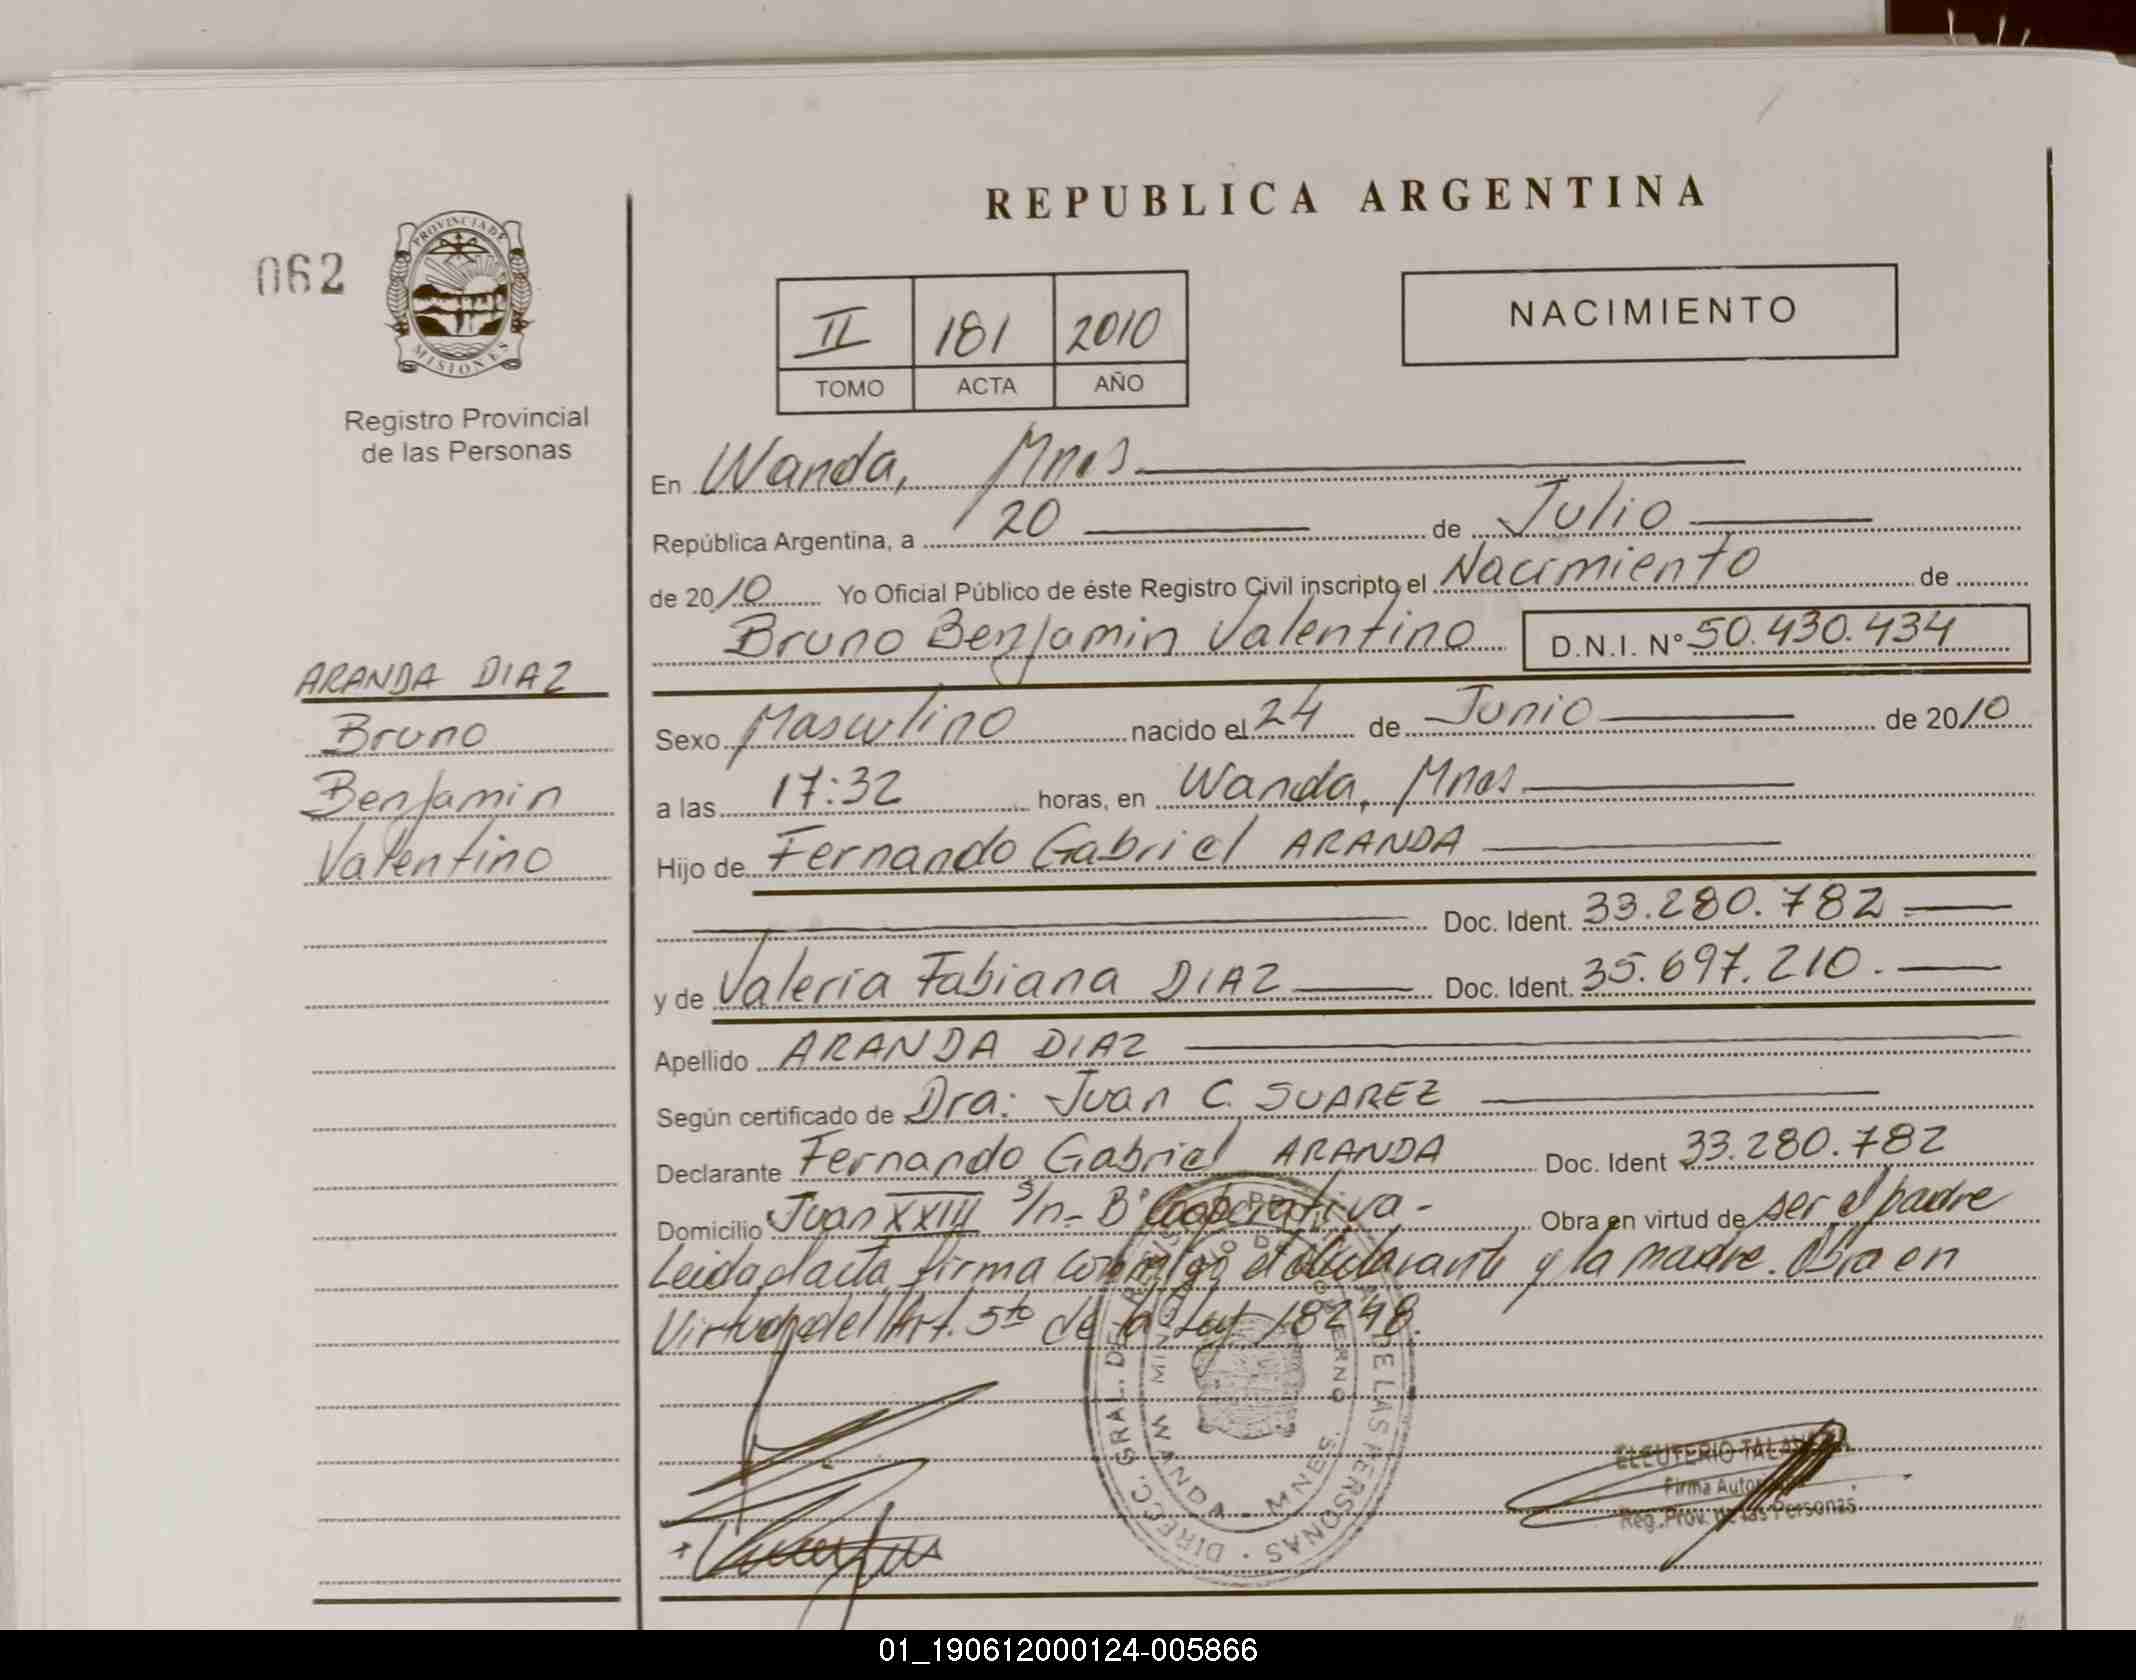 REPUBLICA ARGENTINA
062
PROVINCIA DE
MISIONES
Registro Provincial
de las Personas
II 181 2010
TOMO ACTA AÑO
NACIMIENTO
En Wanda, Mnes
República Argentina, a 20 de Julio
de 2010 Yo Oficial Público de éste Registro Civil inscripto el Nacimiento de
Bruno Benjamin Valentino D.N.I. N° 50.430.434
ARANDA DIAZ
Bruno
Benjamin
Valentino
Sexo Masculino nacido el 24 de Junio de 2010
a las 17:32 horas, en Wanda, Mnes
Hijo de Fernando Gabriel ARANDA
Doc. Ident. 33.280.782
y de Valeria Fabiana DIAZ Doc. Ident. 35.697.210.
Apellido ARANDA DIAZ
Según certificado de Dra: Juan C. SUAREZ
Declarante Fernando Gabriel ARANDA Doc. Ident 33.280.782
Domicilio Juan XXIII s/n - B° Cooperativa - Obra en virtud de ser el padre
Leida el acta firma conmigo el declarante y la madre. Obra en
Virtud del Art. 5to de la Ley 18248.
DIRECC. GRAL. DE LAS PERSONAS
WANDA - MNES.
ELEUTERIO TALAVERA
Firma
Reg. Prov. de las Personas
01_190612000124-005866